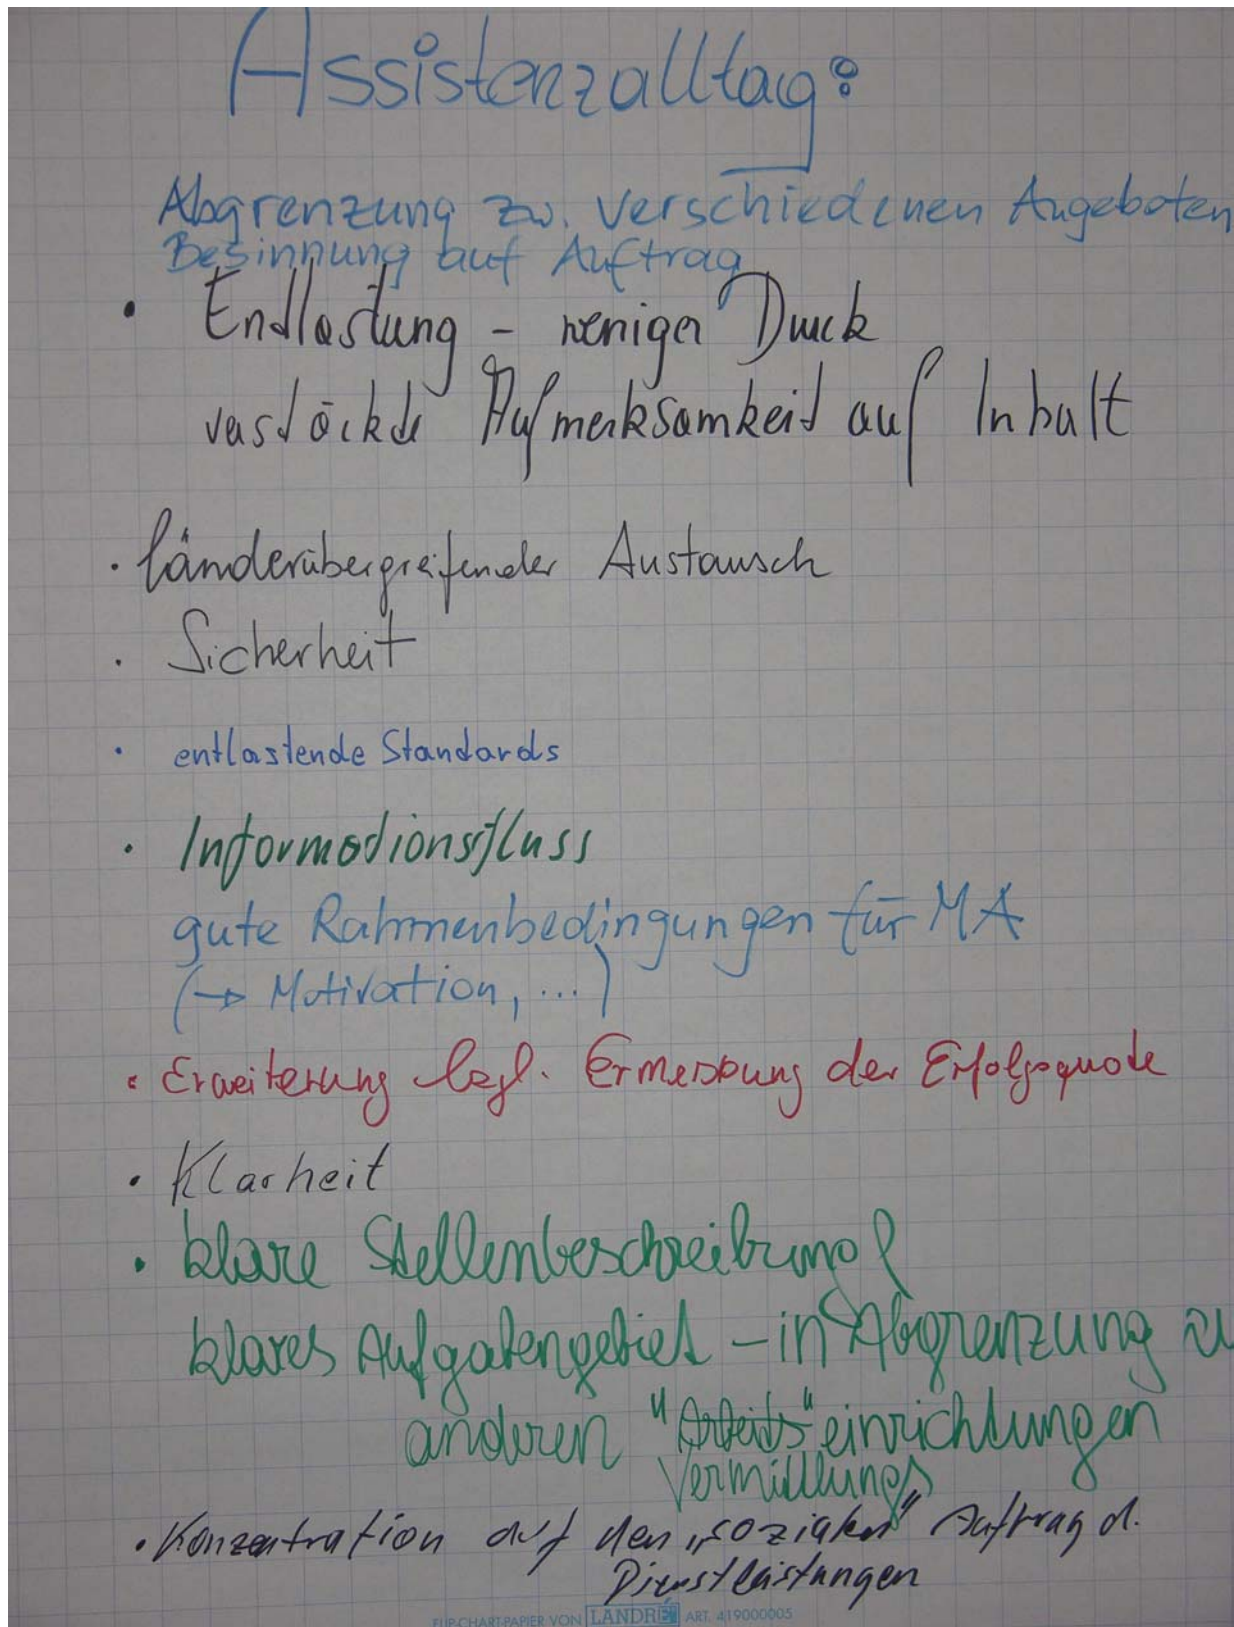 Assistenzalltag:
Abgrenzung zw. verschiedenen Angeboten
Besinnung auf Auftrag
• Endlastung - weniger Druck
verstärkte Aufmerksamkeit auf Inhalt
• länderübergreifender Austausch
• Sicherheit
• entlastende Standards
• Informationsfluss
gute Rahmenbedingungen für MA
(→ Motivation, ...)
• Erweiterung bzgl. Ermessung der Erfolgsquote
• Klarheit
• klare Stellenbeschreibung
klares Aufgabengebiet - in Abgrenzung zu
anderen "Arbeits"einrichtungen
Vermittlungs
• Konzentration auf den „sozialen" Auftrag d.
Dienstleistungen
FLIP-CHART-PAPIER VON LANDRÉ ART. 419000005